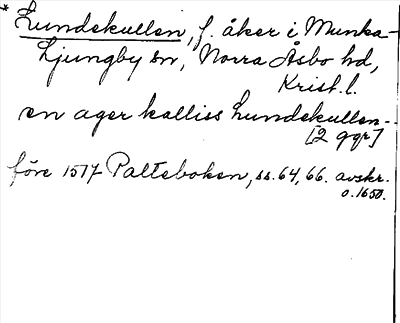 * Lundekullen, f. åker i Munka-
Ljungby sn, Norra Åsbo hd,
Krist. l.
en ager kalliss Lundekullen--
[2 ggr]
före 1517 Palteboken, ss. 64, 66. avskr.
o. 1650.